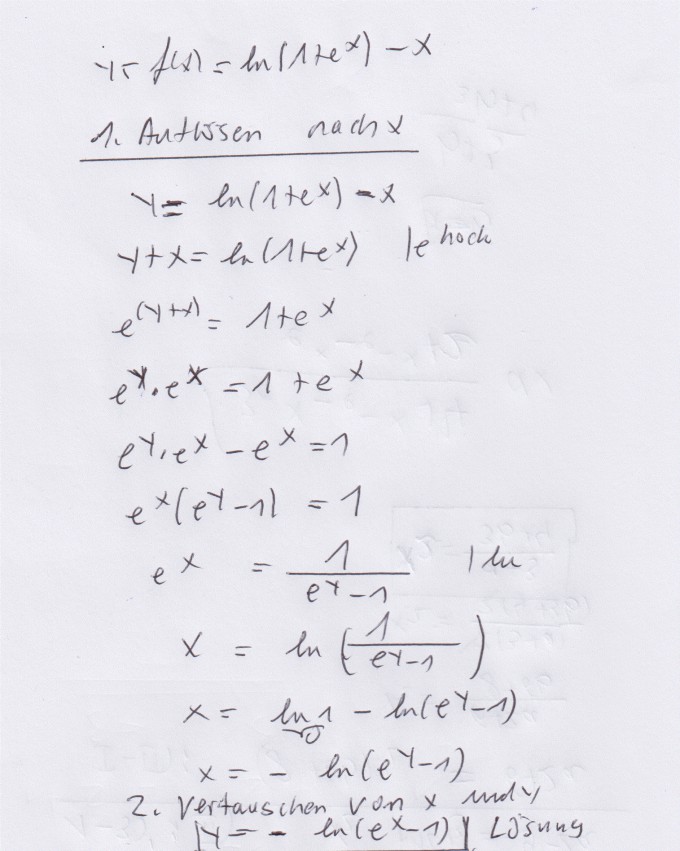 y = f(x) = ln(1+e^x) - x
1. Auflösen nach x
y = ln(1+e^x) - x
y+x = ln(1+e^x) |e^hoch
e^(y+x) = 1+e^x
e^y · e^x = 1 + e^x
e^y · e^x - e^x = 1
e^x(e^y - 1) = 1
e^x = 1/(e^y - 1) | ln
x = ln(1/(e^y - 1))
x = ln 1 - ln(e^y - 1)
0
x = - ln(e^y - 1)
2. Vertauschen von x und y
y = - ln(e^x - 1) Lösung